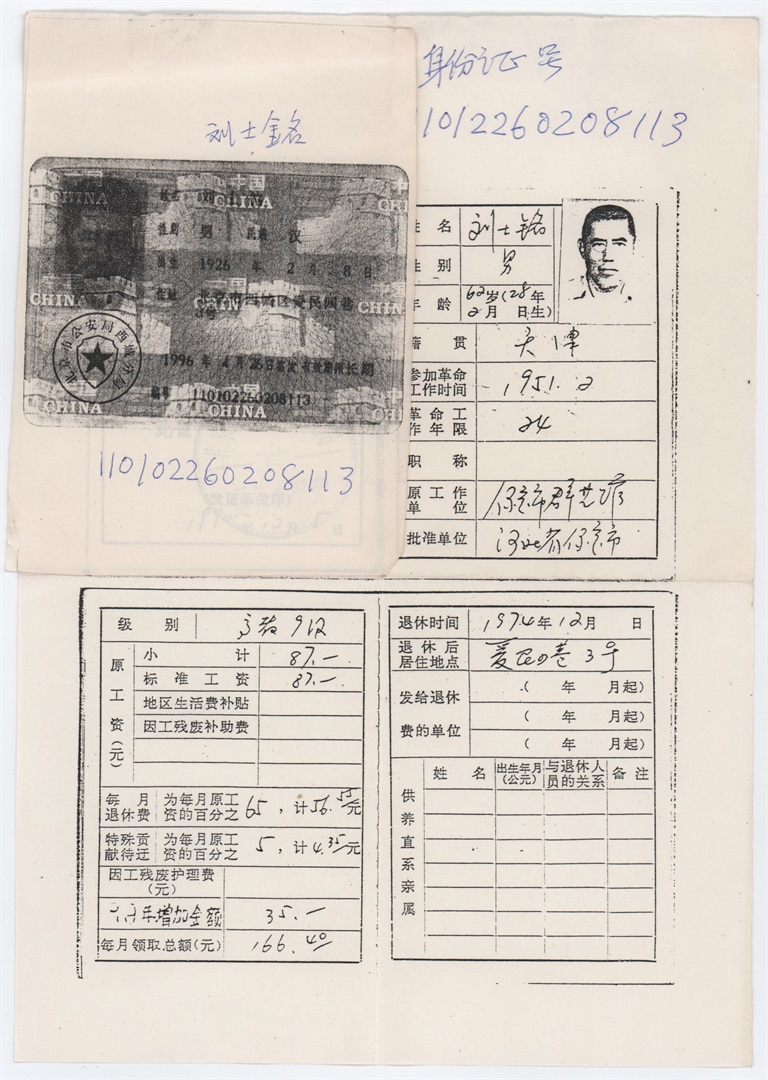 身份证号
11012260208113
刘士铭
中国
CHINA
性别 男 民族 汉
出生 1926 年 2 月 8 日
住址 北京市西城区爱民四巷
3号
1996 年 4 月 25日签发 有效期限长期
编号 110102260208113
北京市公安局西城分局
110102260208113
姓名 刘士铭
性别 男
年龄 62岁(28年
2月 日生)
籍贯 天津
参加革命工作时间 1951.2
革命工作年限 24
职称
原工作单位 保定市群艺馆
批准单位 河北省保定市
级别 文教9级
原工资(元)
小计 87.—
标准工资 87.—
地区生活费补贴
因工残废补助费
每月退休费 为每月原工资的百分之 65,计56.55元
特殊贡献待迂 为每月原工资的百分之 5,计4.35元
因工残废护理费(元)
年增加金额 35.—
每月领取总额(元) 166.40
退休时间 1974年12月 日
退休后居住地点 爱民四巷3号
发给退休费的单位
( 年 月起)
( 年 月起)
( 年 月起)
供养直系亲属
姓名 出生年月(公元) 与退休人员的关系 备注